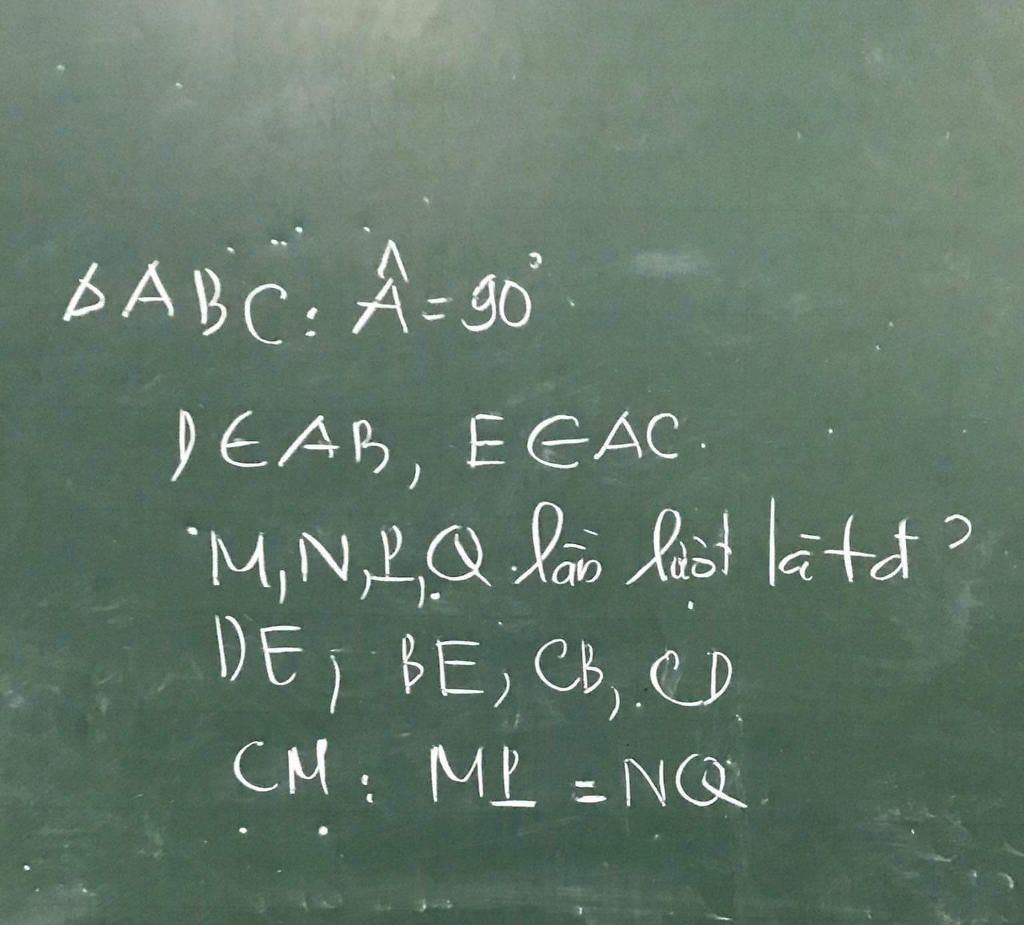 ΔABC: Â = 90°
D ∈ AB, E ∈ AC.
M, N, P, Q lần lượt là tđ
DE; BE, CB, CD
CM: MP = NQ